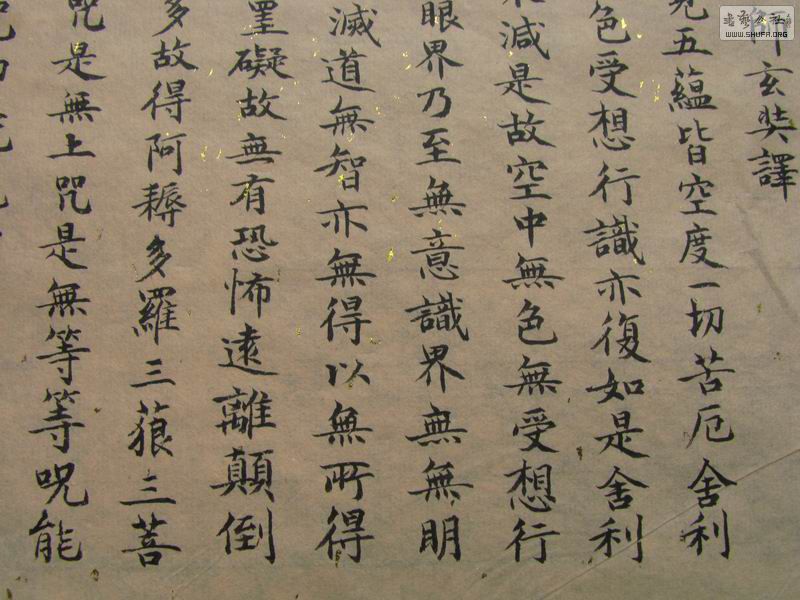 玄奘譯
五蘊皆空度一切苦厄舍利
色受想行識亦復如是舍利
減是故空中無色無受想行
眼界乃至無意識界無無明
滅道無智亦無得以無所得
罣礙故無有恐怖遠離顛倒
多故得阿耨多羅三藐三菩
咒是無上咒是無等等呪能
WWW.SHUFA.ORG